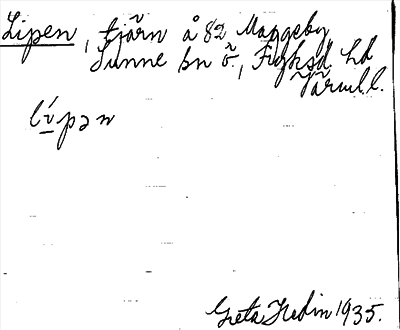 Lipen, tjärn å 82 Mangeby,
Sunne sn ö., Fryksd. hd
Värml. l.
lí̱pən
Greta Hedin 1935.